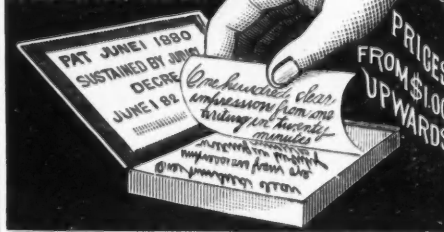 PAT JUNE 1 1880
SUSTAINED BY
DECREE
JUNE 1 82
One hundred clear
impression from one
writing in twenty
minutes
PRICES
FROM $1.00
UPWARDS